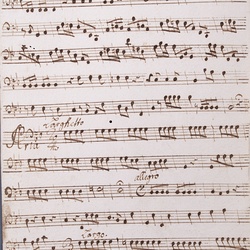 Larghetto
Aria
allegro
Largo